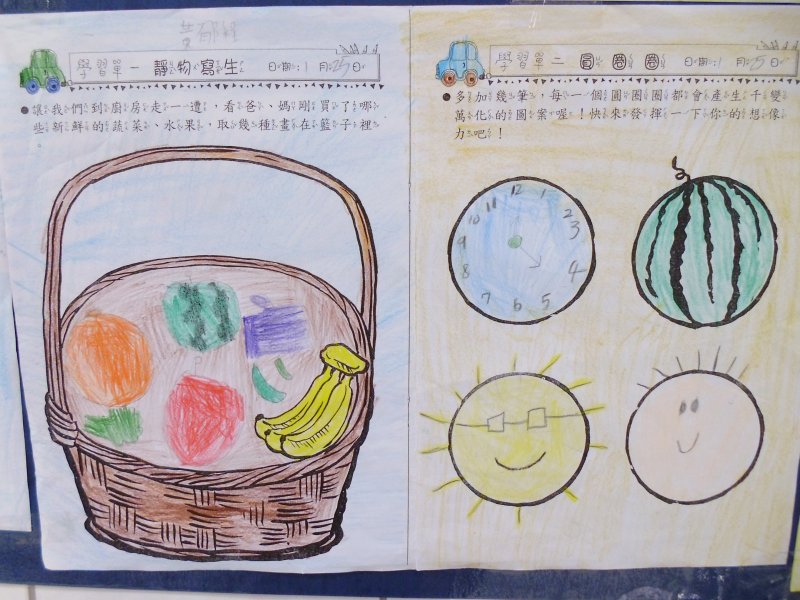 黃郁
學習單一 靜物寫生 日期：1月25日
●讓我們到廚房走一遭，看爸、媽剛買了哪
些新鮮的蔬菜、水果，取幾種畫在籃子裡
學習單二 圓圈圈 日期：1月25日
●多加幾筆，每一個圓圈圈都會產生千變
萬化的圖案喔！快來發揮一下你的想像
力吧！
12
11 1
10 2
9 3
8 4
7 6 5